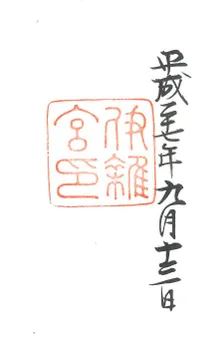 平成二十七年九月十三日
伊雜
宮印